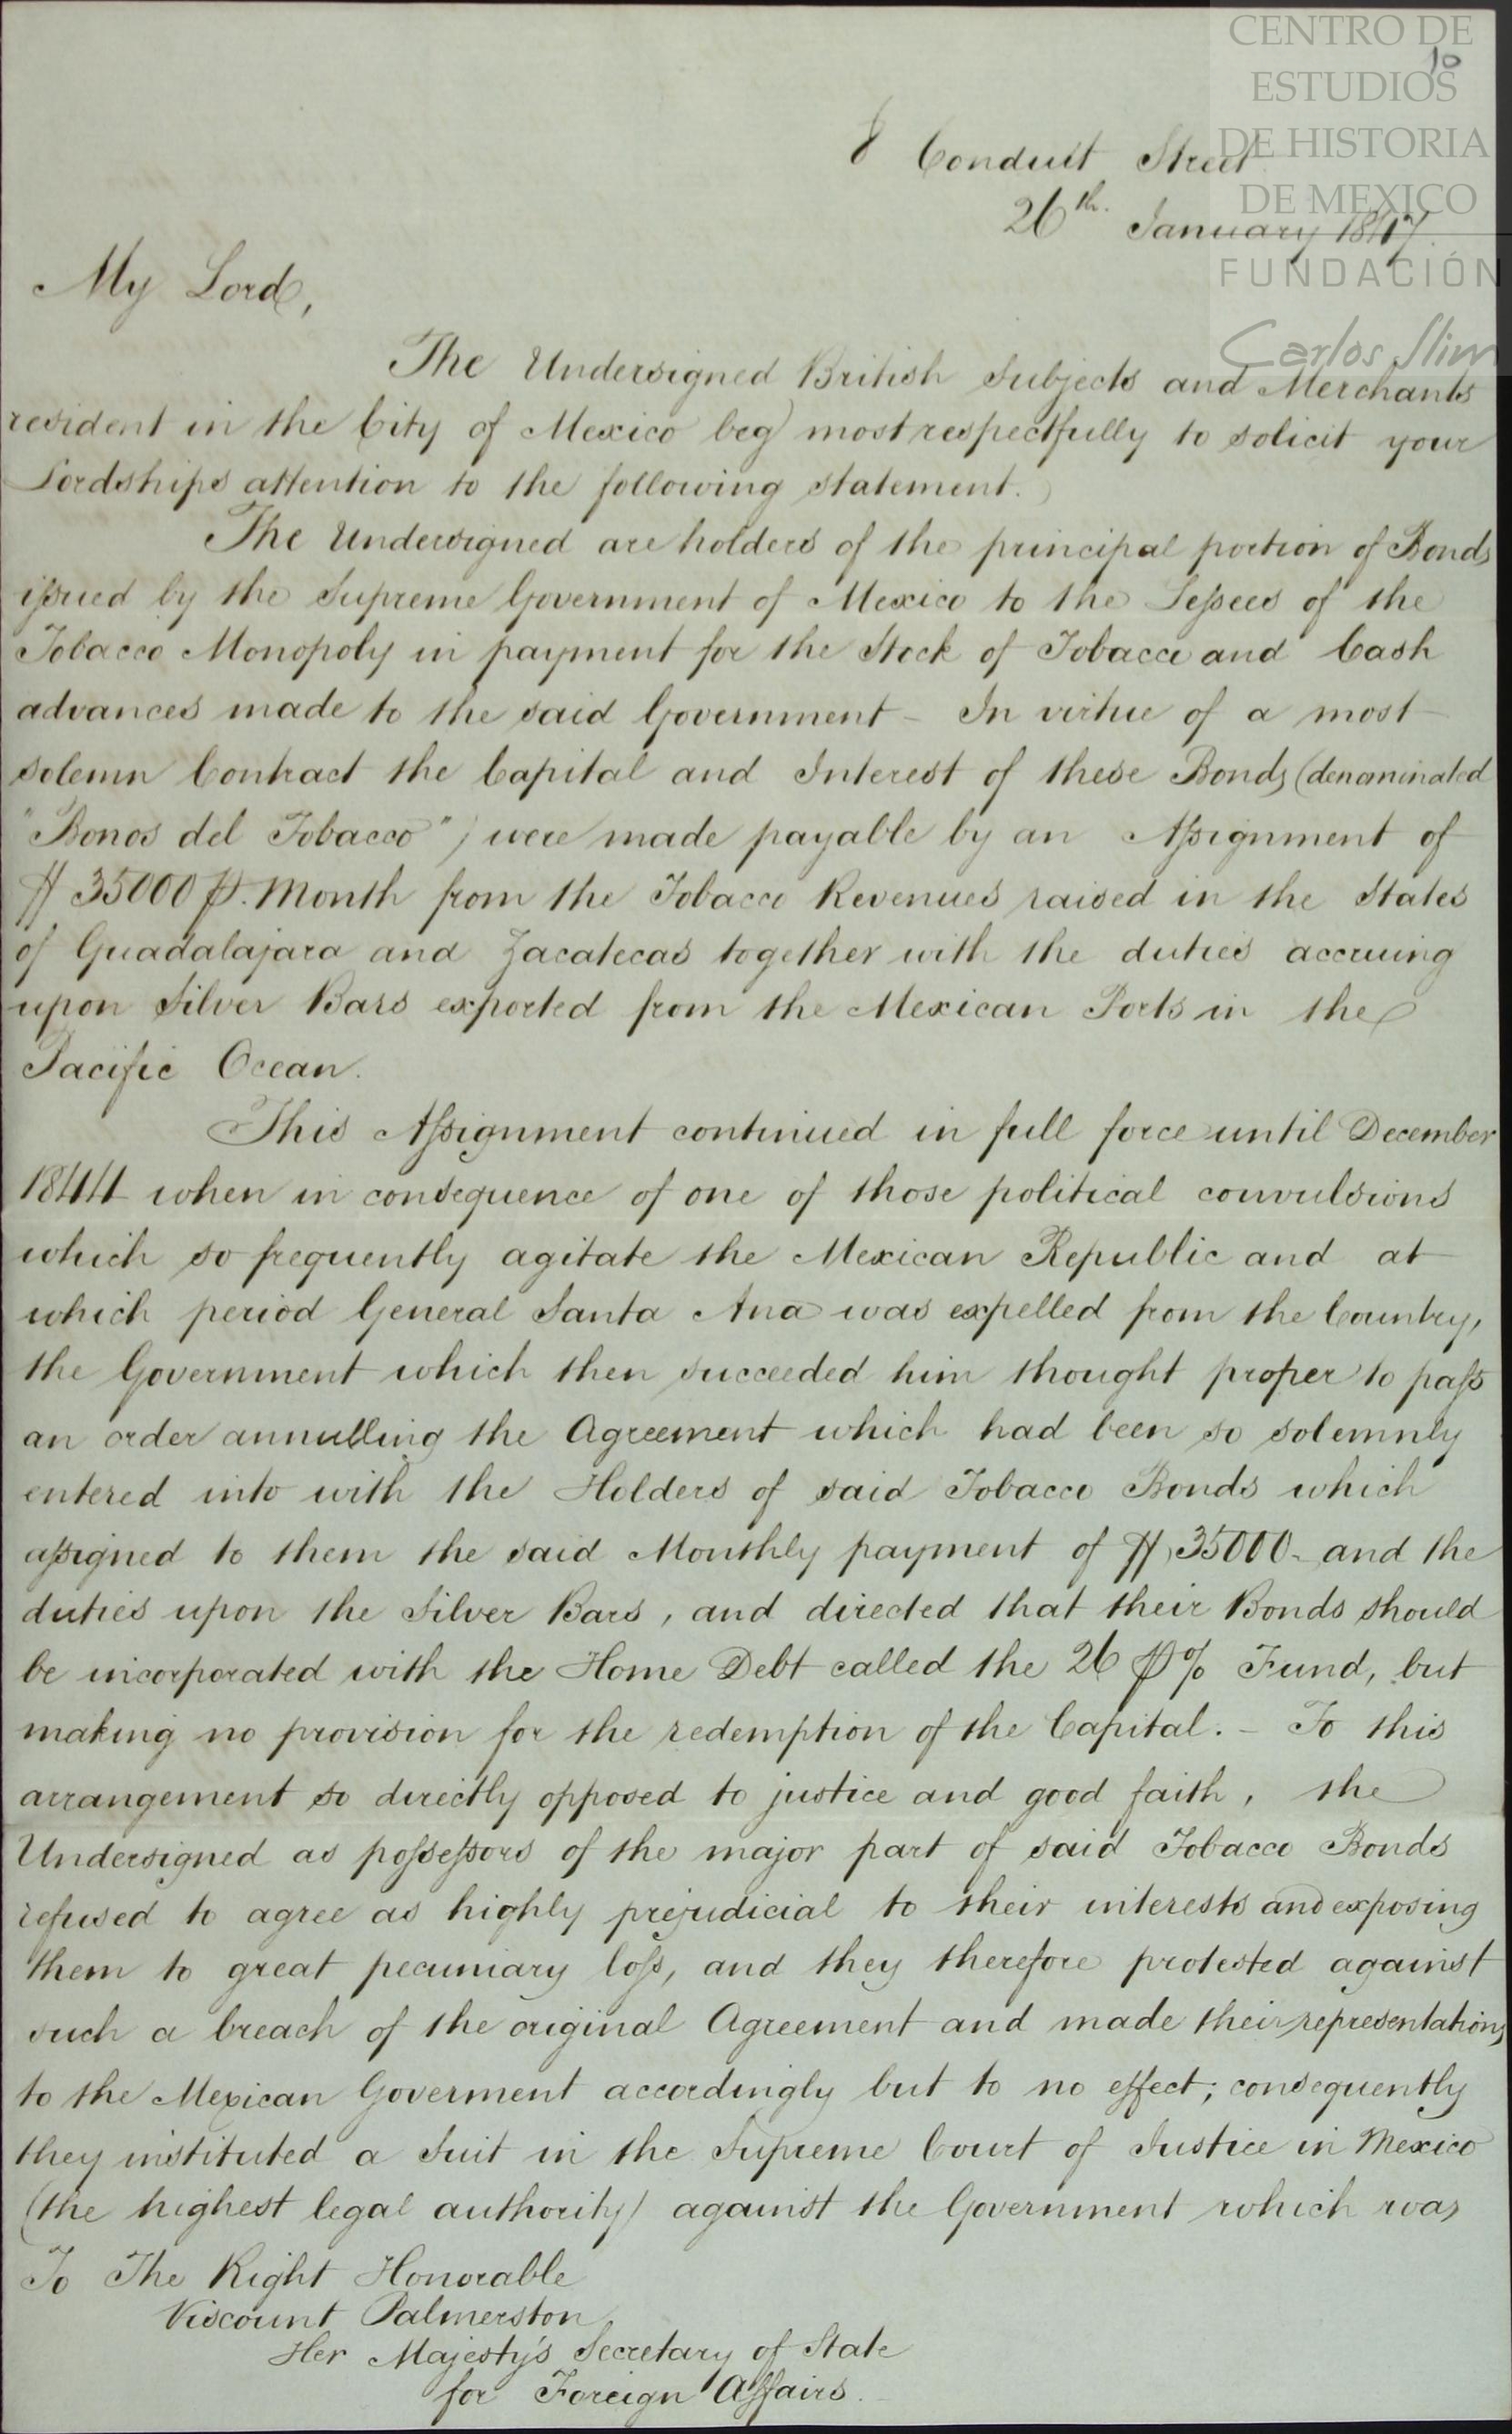 CENTRO DE
ESTUDIOS
DE HISTORIA
DE MEXICO
FUNDACIÓN
Carlos Slim
10
8 Conduit Street
26th. January 1847.
My Lord,
The Undersigned British Subjects and Merchants
resident in the City of Mexico beg most respectfully to solicit your
Lordships attention to the following statement.
The Undersigned are holders of the principal portion of Bonds
issued by the Supreme Government of Mexico to the Lessees of the
Tobacco Monopoly in payment for the Stock of Tobacco and Cash
advances made to the said Government - In virtue of a most
solemn Contract the Capital and Interest of these Bonds (denominated
"Bonos del Tobacco") were made payable by an Assignment of
$ 35000 ⅌. Month from the Tobacco Revenues raised in the States
of Guadalajara and Zacatecas together with the duties accruing
upon Silver Bars exported from the Mexican Ports in the
Pacific Ocean.
This Assignment continued in full force until December
1844 when in consequence of one of those political convulsions
which so frequently agitate the Mexican Republic and at
which period General Santa Ana was expelled from the Country,
the Government which then succeeded him thought proper to pass
an order annulling the Agreement which had been so solemnly
entered into with the Holders of said Tobacco Bonds which
assigned to them the said Monthly payment of $ 35000 - and the
duties upon the Silver Bars, and directed that their Bonds should
be incorporated with the Home Debt called the 26 ⅌ % Fund, but
making no provision for the redemption of the Capital. - To this
arrangement so directly opposed to justice and good faith, the
Undersigned as possessors of the major part of said Tobacco Bonds
refused to agree as highly prejudicial to their interests and exposing
them to great pecuniary loss, and they therefore protested against
such a breach of the original Agreement and made their representations
to the Mexican Goverment accordingly but to no effect; consequently
they instituted a Suit in the Supreme Court of Justice in Mexico
(the highest legal authority) against the Government which was
To The Right Honorable
Viscount Palmerston
Her Majesty's Secretary of State
for Foreign Affairs.